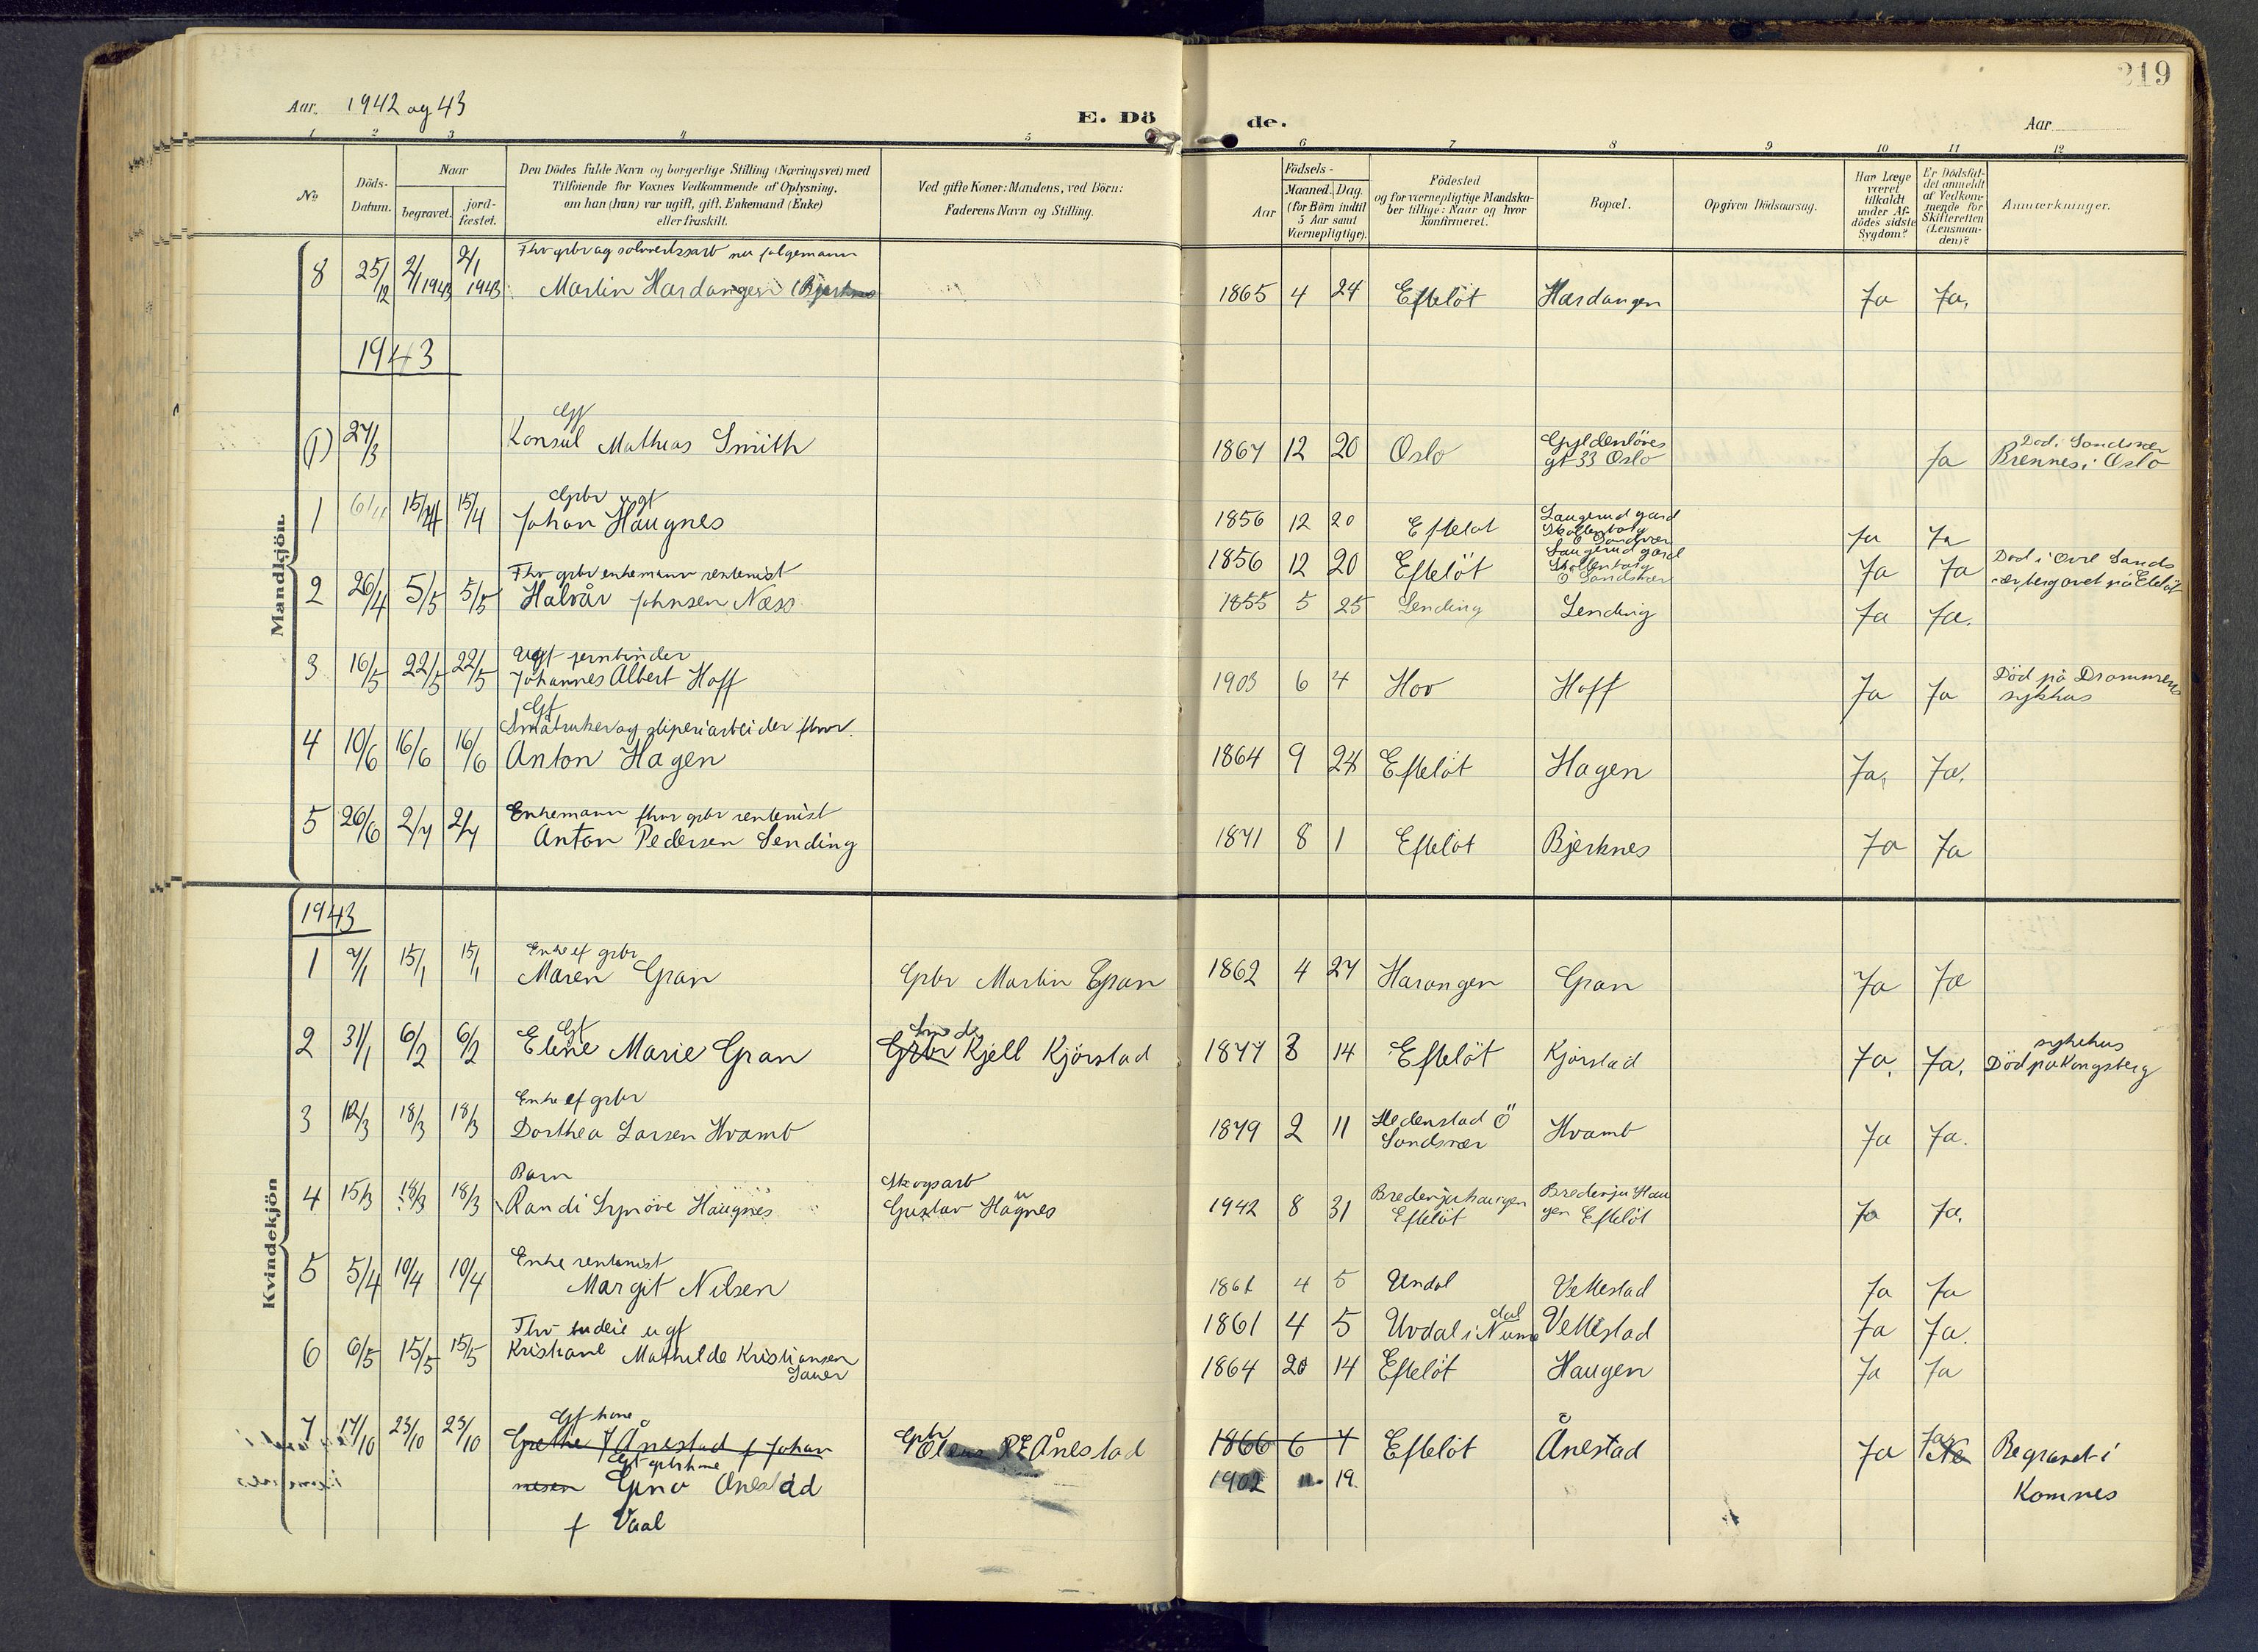 219
Aar. 1942 og 43
E. Dö de.
Aar
1 2 3 4 5 6 7 8 9 10 11 12
No
Döds-Datum.
Naar
begravet.
jord-fæstet.
Den Dödes fulde Navn og borgerlige Stilling (Næringsvei) med
Tilföiende for Voxnes Vedkommende af Oplysning,
om han (hun) var ugift, gift, Enkemand (Enke)
eller fraskilt.
Ved gifte Koner: Mandens, ved Börn:
Faderens Navn og Stilling.
Födsels-
Aar
Maaned. Dag.
(for Börn indtil
5 Aar samt
Værnepligtige).
Födested
og for værnepligtige Mandska-
ber tillige: Naar og hvor
konfirmeret.
Bopæl.
Opgiven Dödsaarsag.
Har Læge
været
tilkaldt
under Af-
dödes sidste
Sygdom?
Er Dödsfal-
det anmeldt
af Vedkom-
mende for
Skifteretten
(Lensman-
den)?
Anmærkninger.
Mandkjön.
8 25/12 2/1 1943 2/1 1943 Fhv grbr og
Martin Hardangen (Bjerknes 1865 4 24 Efteløt Hardangen Ja Ja,
1943
(1) 27/3 Gf
Konsul Mathias Smith 1867 12 20 Oslo Gyldenløves
gt 33 Oslo Ja Død i Sandsvær
Brennes i Oslo
1 6/11 15/4 15/4 Grbr ugt
Johan Haugnes 1856 12 20 Efteløt Saugerud gård
Skollenborg
Ø Sandsvær Ja Ja
1856 12 20 Efteløt Saugerud gård
Skollenborg
Ø Sandsvær Ja Ja Død i Øvre Sands
vær begravet på Efteløt
2 26/4 5/5 5/5 Fhv grbr enkemann rentenist
Halvår Johnsen Næss 1855 5 25 Sending Sending Ja Ja.
3 16/5 22/5 22/5 Ugt jernbinder
Johannes Albert Hoff 1903 6 4 Hov Hoff Ja Ja Død på Drammens
sykhus
4 10/6 16/6 16/6 Gf
Småbruker og sliperiarbeider fhvr.
Anton Hagen 1864 9 24 Efteløt Hagen Ja, Ja,
5 26/6 2/7 2/7 Enkemann fhvr grbr rentenist
Anton Pedersen Sending 1871 8 1 Efteløt Bjerknes Ja Ja
Kvindekjön
1943
1 7/1 15/1 15/1 Enke ef grbr
Maren Gran Grbr Martin Gran 1862 4 27 Harangen Gran Ja Ja
2 31/1 6/2 6/2 Gf
Eline Marie Gran Grbr Kjell Kjørstad 1877 8 14 Efteløt Kjørstad Ja, Ja, sykehus
Død på Kongsberg
3 12/3 18/3 18/3 Enke ef grbr
Dorthea Larsen Hvamb 1879 2 11 Hedenstad Ø
Sandsvær Hvamb Ja Ja.
4 15/3 18/3 18/3 Barn
Randi Synøve Haugnes Skogsarb
Gustav Haugnes 1942 8 31 Bredenjuhaugen
Efteløt Bredenju Hau
gen Efteløt Ja Ja,
5 5/4 10/4 10/4 Enke rentenist
Margit Nilsen 1861 4 5 Undal Vettestad Ja Ja
1861 4 5 Uvdal i Numedal Vettestad Ja Ja.
6 6/5 15/5 15/5 Fhv budeie ugf
Kristiane Mathilde Kristiansen
Sauer 1864 20 14 Efteløt Haugen Ja Ja
7 17/10 23/10 23/10 Gf kone
Grethe Ånestad f Johan
nesen Gf grbrkone
Gina Ånestad
f Vaal
Grbr Ånestad 1866 6 7 Efteløt Ånestad Ja Ja Begravet i
Komnes
1902 11. 19.